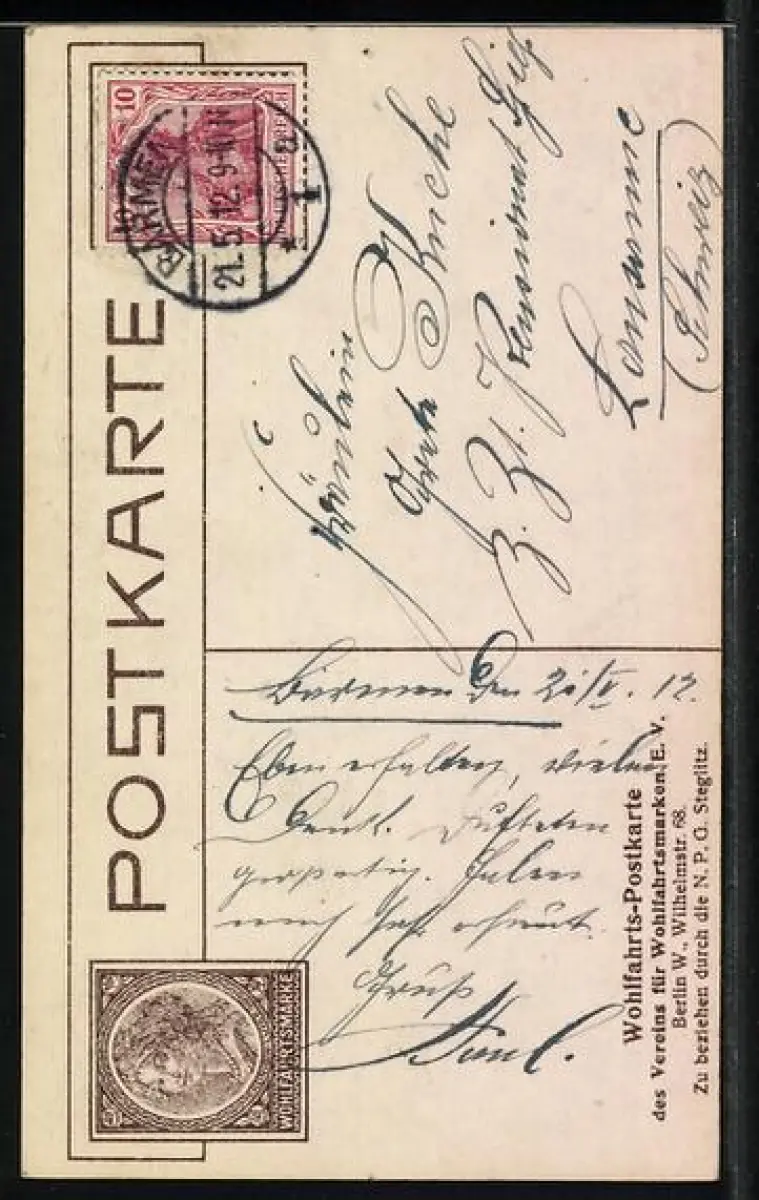 POSTKARTE
10
DEUTSCHES REICH
BARMEN
21.5.12. 9-10 N
* 1 a
WOHLFAHRTSMARKE
Fräulein
Grete Kuche
z. Zt. Pensionat
Lausanne
(Schweiz)
Barmen den 21/V. 12.
Eben erhalten, vielen
Dank.
Haben
mich sehr erfreut.
Gruß
Paul.
Wohlfahrts-Postkarte
des Vereins für Wohlfahrtsmarken, E. V.
Berlin W., Wilhelmstr. 68.
Zu beziehen durch die N. P. G. Steglitz.